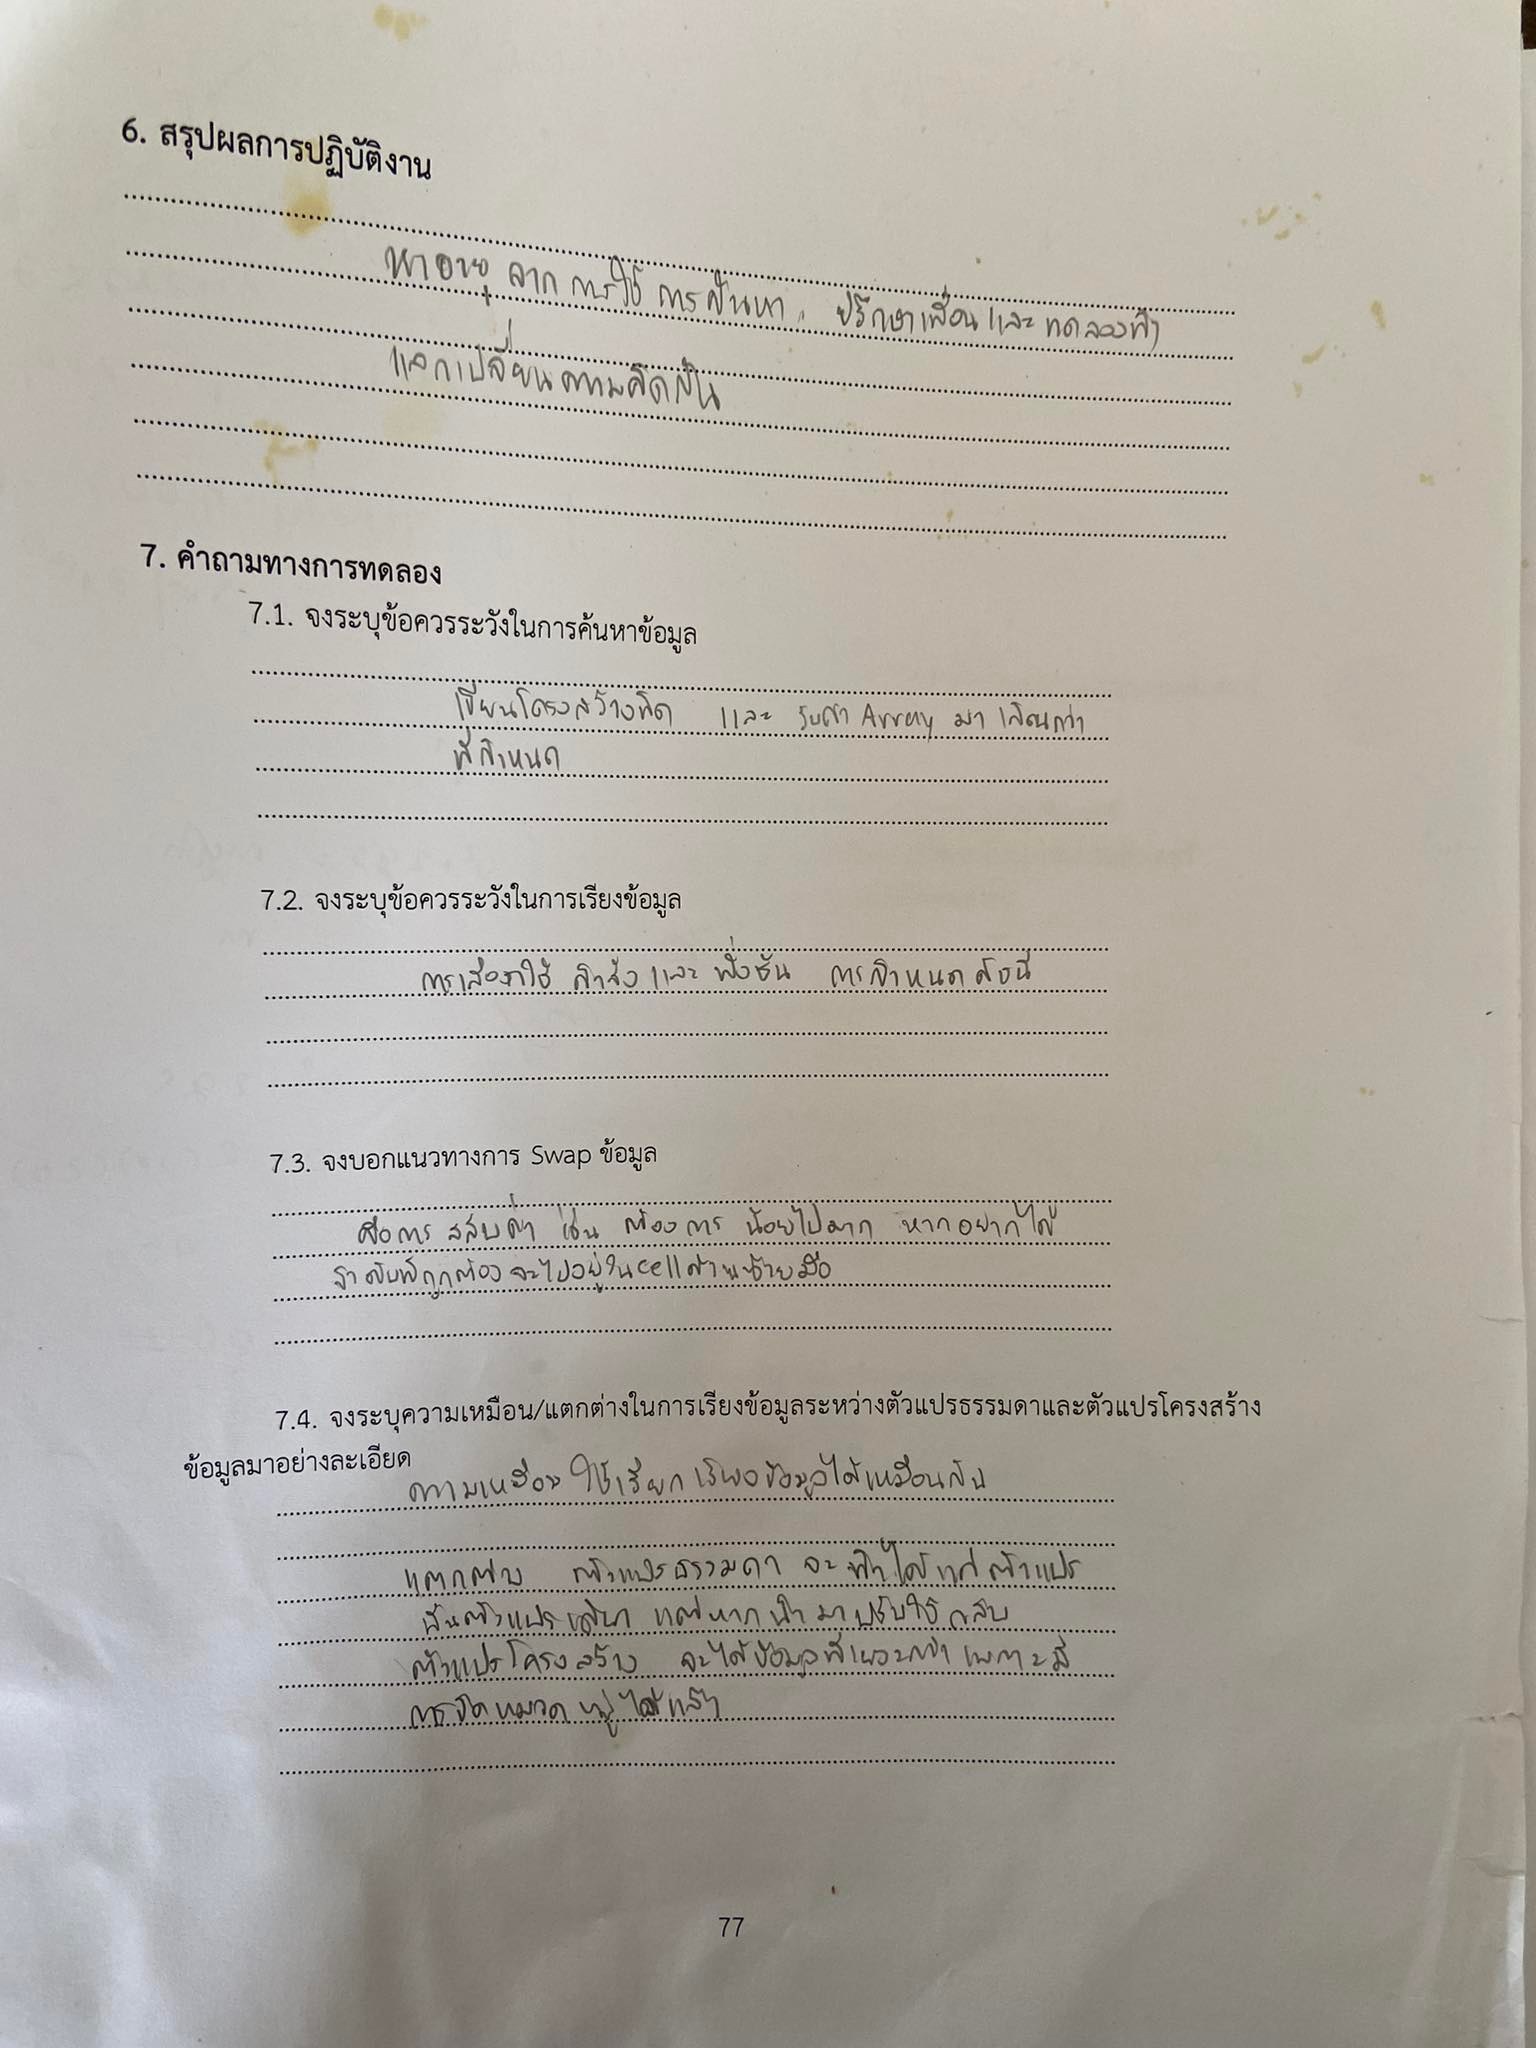 6. สรุปผลการปฏิบัติงาน
หาอายุ จาก การใช้ การค้นหา. ปรึกษาเพื่อนและทดลองทำ
แลกเปลี่ยนความคิดกัน
7. คำถามทางการทดลอง
7.1. จงระบุข้อควรระวังในการค้นหาข้อมูล
เขียนโครงสร้างผิด และ รับค่า Array มา เกินกว่า
ที่กำหนด
7.2. จงระบุข้อควรระวังในการเรียงข้อมูล
การเลือกใช้ คำสั่ง และ ฟังชั่น การกำหนด ดัชนี
7.3. จงบอกแนวทางการ Swap ข้อมูล
คือการ สลับค่า เช่น ต้องการ น้อยไปมาก หากอยากได้
ลำดับที่ถูกต้อง จะไปอยู่ใน cell ด้านซ้ายมือ
7.4. จงระบุความเหมือน/แตกต่างในการเรียงข้อมูลระหว่างตัวแปรธรรมดาและตัวแปรโครงสร้าง
ข้อมูลมาอย่างละเอียด
ความเหมือน ใช้เรียก เรียงข้อมูลได้เหมือนกัน
แตกต่าง ตัวแปรธรรมดา จะ ทำได้แค่ ตัวแปร
นั้นตัวแปรเดียว แต่หาก นำ มาปรับใช้ กับ
ตัวแปรโครงสร้าง จะได้ข้อมูลที่เยอะกว่า เพราะมี
การจัดหมวดหมู่ไว้แล้ว
77